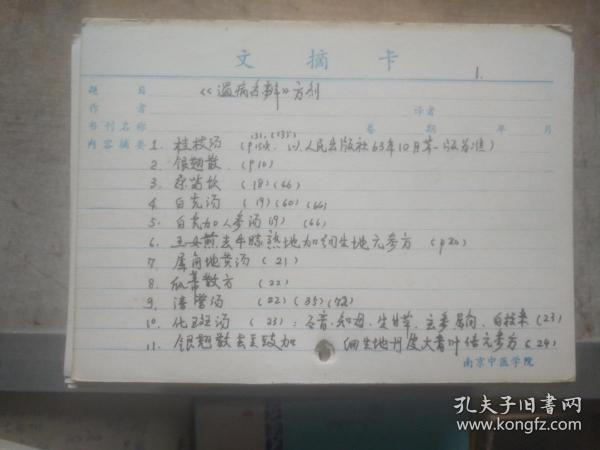 文摘卡
1.
题目 《温病条辨》方剂
作者 译者
书刊名称 卷 期 年 月
内容摘要 1. 桂枝汤 以人民出版社63年10月第一版为准)
2. 银翘散 (P16)
3. 桑菊饮 (18)(66)
4. 白虎汤 (19)(60)(66)
5. 白虎加人参汤 (19) (66)
6. 玉女煎去牛膝熟地加细生地元参方 (P20)
7. 犀角地黄汤 (21)
8. 瓜蒂散方 (22)
9. 清营汤 (22)(35)
10. 化斑汤 (23):石膏、知母、生甘草、玄参、犀角、白粳米 (23)
11. 银翘散去豆豉加 细生地丹皮大青叶倍元参方 (24)
南京中医学院
孔夫子旧书网
www.kongfz.com